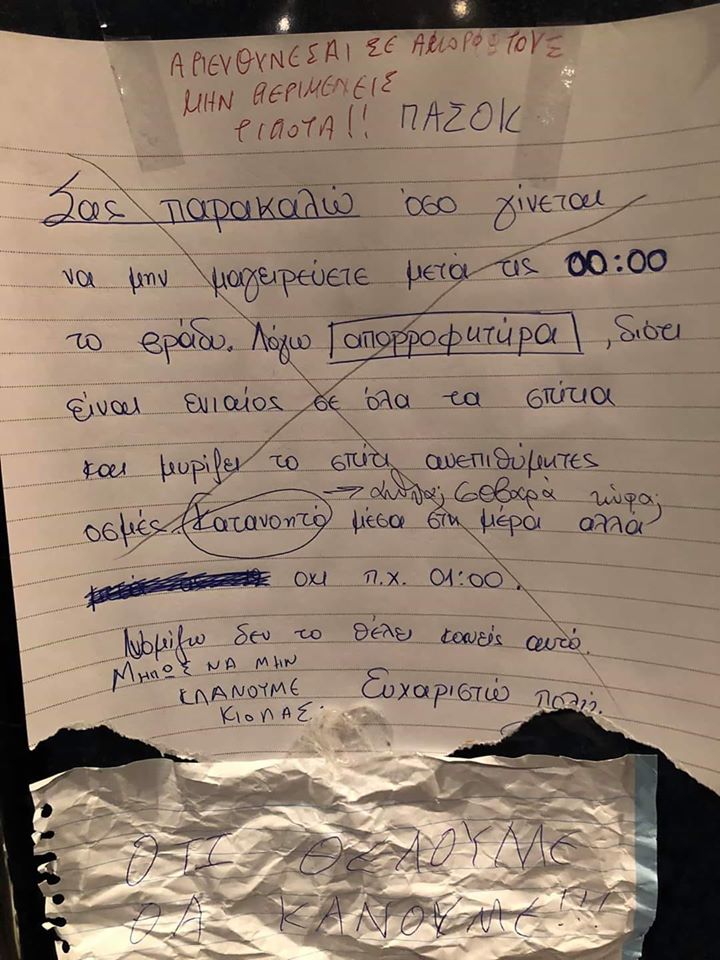 ΑΠΕΥΘΥΝΕΣΑΙ ΣΕ ΑΜΟΡΦΩΤΟΥΣ
ΜΗΝ ΠΕΡΙΜΕΝΕΙΣ
ΤΙΠΟΤΑ!! ΠΑΣΟΚ
Σας παρακαλώ όσο γίνεται
να μην μαγειρεύετε μετά τις 00:00
το βράδυ. Λόγω απορροφιτύρα, διότι
είναι ενιαίος σε όλα τα σπίτια
και μυρίζει το σπίτι ανεπιθύμητες
→ αλήθεια; σοβαρά τώρα;
οσμές. Κατανοητό μέσα στη μέρα αλλά
οχι π.χ. 01:00.
Νομίζω δεν το θέλει κανείς αυτό.
ΜΗΠΩΣ ΝΑ ΜΗΝ
ΚΛΑΝΟΥΜΕ
ΚΙΟΛΑΣ;
Ευχαριστώ πολύ.
ΟΤΙ ΘΕΛΟΥΜΕ
ΘΑ ΚΑΝΟΥΜΕ!!!